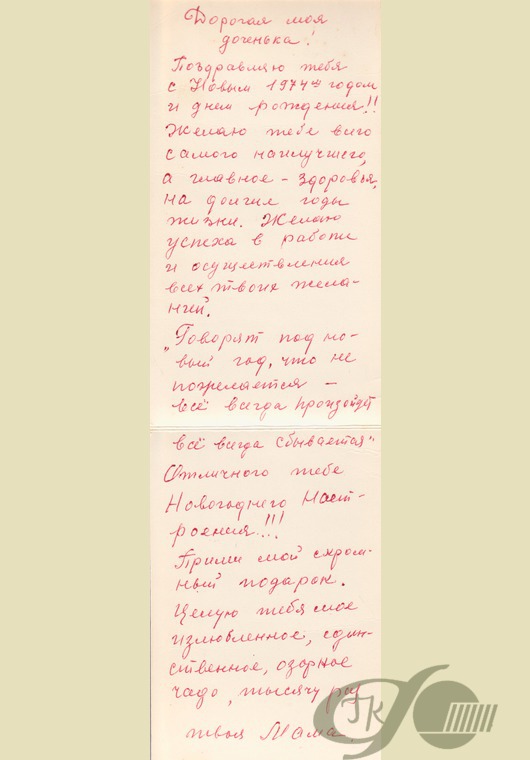 Дорогая моя
доченька!
Поздравляю тебя
с Новым 1974ым годом
и днем рождения!!
Желаю тебе всего
самого наилучшего,
а главное - здоровья,
на долгие годы
жизни. Желаю
успеха в работе
и осуществления
всех твоих жела-
ний.
„Говорят под но-
вый год, что не
пожелается –
всё всегда произойдёт
всё всегда сбывается"
Отличного тебе
Новогоднего Наст-
роения!!!
Прими мой скром-
ный подарок.
Целую тебя мое
излюбленное, един-
ственное, озорное
чадо, тысячу раз
твоя Мама.
ГК